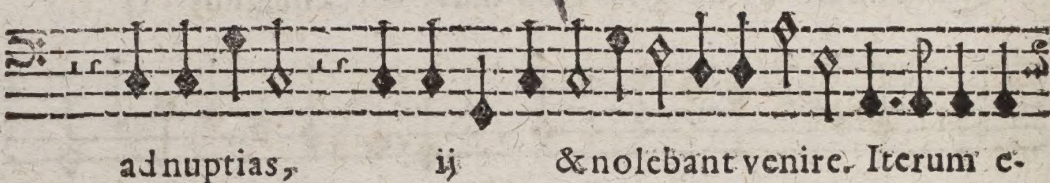 ad nuptias, ij & nolebant venire. Iterum e-